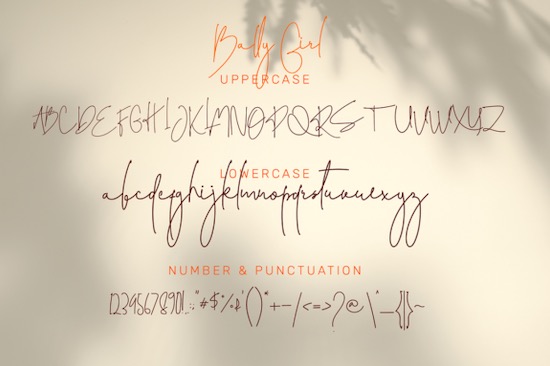 Bally Girl
UPPERCASE
ABCDEFGHIJKLMNOPQRSTUVWXYZ
LOWERCASE
abcdefghijklmnopqrstuvwxyz
NUMBER & PUNCTUATION
1234567890!.,:;"#$%&'()*+-/<=>?@\^_{|}~